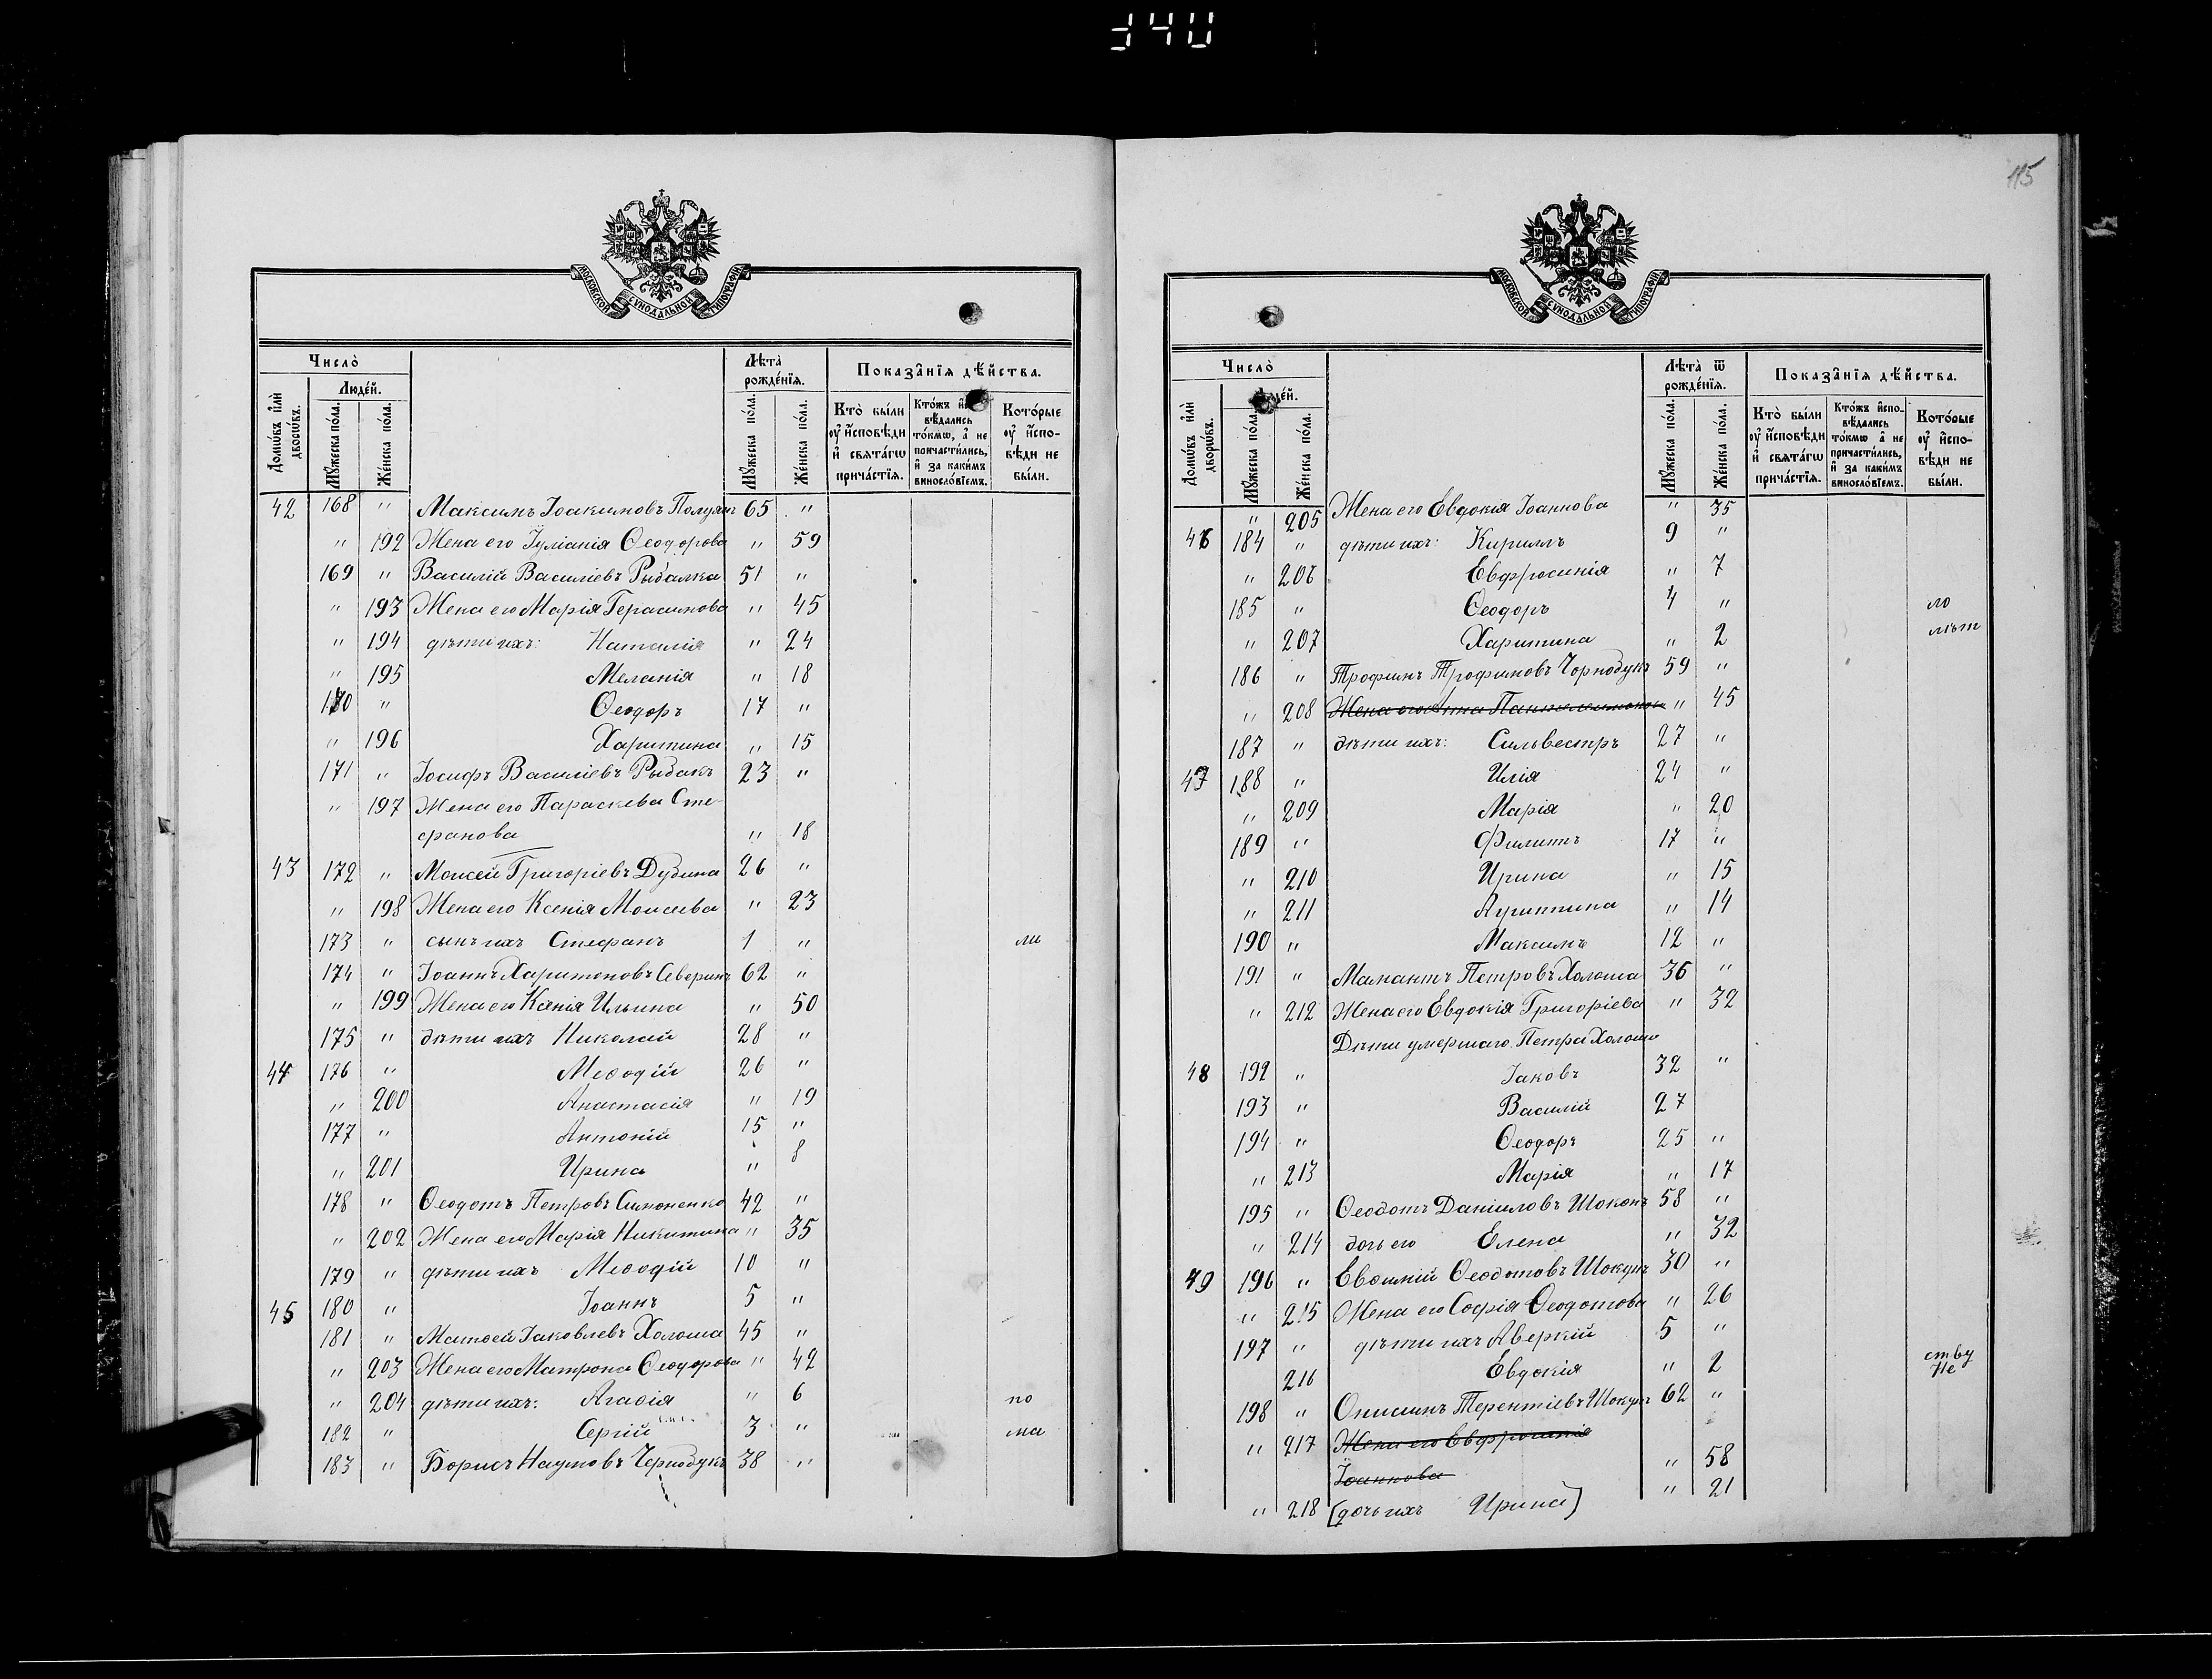 340
МОСКОВСКОЙ СѴНОДАЛЬНОЙ ТИПОГРАФІИ
Число̀
Людéй.
Лѣта̀ рождéнїѧ.
Показа̂нїѧ дѣ́йства.
Домѡ́въ и҆лѝ дворѡ́въ.
Мꙋ́жеска по́ла.
Же́нска по́ла.
Мꙋ́жеска по́ла.
Же́нска по́ла.
Кто̀ бы́ли ᲂу҆ и҆́сповѣди и҆ свѧта́гѡ прича́стїѧ.
Кто́жъ и҆сповѣ́дались то́кмѡ, а҆ не причасти́лись, и҆ за каки́мъ виносло́вїемъ.
Кото́рые ᲂу҆ и҆́сповѣди не бы́ли.
42 168 " Максимъ Іоакимовъ Полуян 65 "
" 192 Жена его Іуліанія Ѳеодорова " 59
169 " Василій Василіевъ Рыбалка 51 "
" 193 Жена его Марія Герасимова " 45
" 194 дѣти ихъ: Наталія " 24
" 195 Меланія " 18
170 " Ѳеодоръ 17 "
" 196 Харитина " 15
171 " Іосифъ Василіевъ Рыбакъ 23 "
" 197 Жена его Параскева Сте-
фанова " 18
43 172 " Моисей Григоріевъ Дубина 26 "
" 198 Жена его Ксенія Моисеева " 23
173 " сынъ ихъ Стефанъ 1 " ли
174 " Іоаннъ Харитоновъ Северин 62 "
" 199 Жена его Ксенія Ильина " 50
175 " дѣти ихъ Николай 28 "
44 176 " Меѳодій 26 "
" 200 Анастасія " 19
177 " Антоній 15 "
" 201 Ирина " 8
178 " Ѳеодотъ Петровъ Симоненко 42 "
" 202 Жена его Марія Никитина " 35
179 " дѣти ихъ Меѳодій 10 "
45 180 " Іоаннъ 5 "
181 " Матѳей Іаковлевъ Холоша 45 "
" 203 Жена его Матрона Ѳеодорова " 42
" 204 дѣти ихъ: Агаѳія " 6 по
182 " Сергій 3 " ма
183 " Борисъ Наумовъ Чернобукъ 38 "
115
МОСКОВСКОЙ СѴНОДАЛЬНОЙ ТИПОГРАФІИ
Число̀
Лѣта̀ ѿ рождéнїѧ.
Показа̂нїѧ дѣ́йства.
Домѡ́въ и҆лѝ дворѡ́въ.
Мꙋ́жеска по́ла.
Же́нска по́ла.
Мꙋ́жеска по́ла.
Же́нска по́ла.
Кто̀ бы́ли ᲂу҆ и҆́сповѣди и҆ свѧта́гѡ прича́стїѧ.
Кто́жъ и҆сповѣ́дались то́кмѡ а҆ не причасти́лись, и҆ за каки́мъ виносло́вїемъ.
Кото́рые ᲂу҆ и҆́сповѣди не бы́ли.
" 205 Жена его Евдокія Іоаннова " 35
46 184 " дѣти ихъ: Кириллъ 9 "
" 206 Евфросинія " 7
185 " Ѳеодоръ 4 " ло
" 207 Харитина " 2 лѣт
186 " Трофимъ Трофимовъ Чорнобукъ 59 "
" 208 Жена его Анна Пантелеимонова " 45
187 " дѣти ихъ: Сильвестръ 27 "
47 188 " Илія 24 "
" 209 Марія " 20
189 " Филиппъ 17 "
" 210 Ирина " 15
" 211 Агриппина " 14
190 " Максимъ 12 "
191 " Мамантъ Петровъ Холоша 36 "
" 212 Жена его Евдокія Григоріева " 32
Дѣти умершаго Петра Холоши
48 192 " Іаковъ 32 "
193 " Василій 27
194 " Ѳеодоръ 25 "
" 213 Марія " 17
195 " Ѳеодотъ Даніиловъ Шокон 58 "
" 214 дочь его Елена " 32
49 196 " Евѳимій Ѳеодотовъ Шокун 30 "
" 215 Жена его Софія Ѳеодотова " 26
197 " дѣти ихъ Аверкій 5 "
216 Евдокія " 2 ству
Не
198 " Онисимъ Терентіевъ Шокун 62 "
" 217 Жена его Евфросинія
Іоаннова " 58
" 218 [дочь ихъ Ирина] " 21